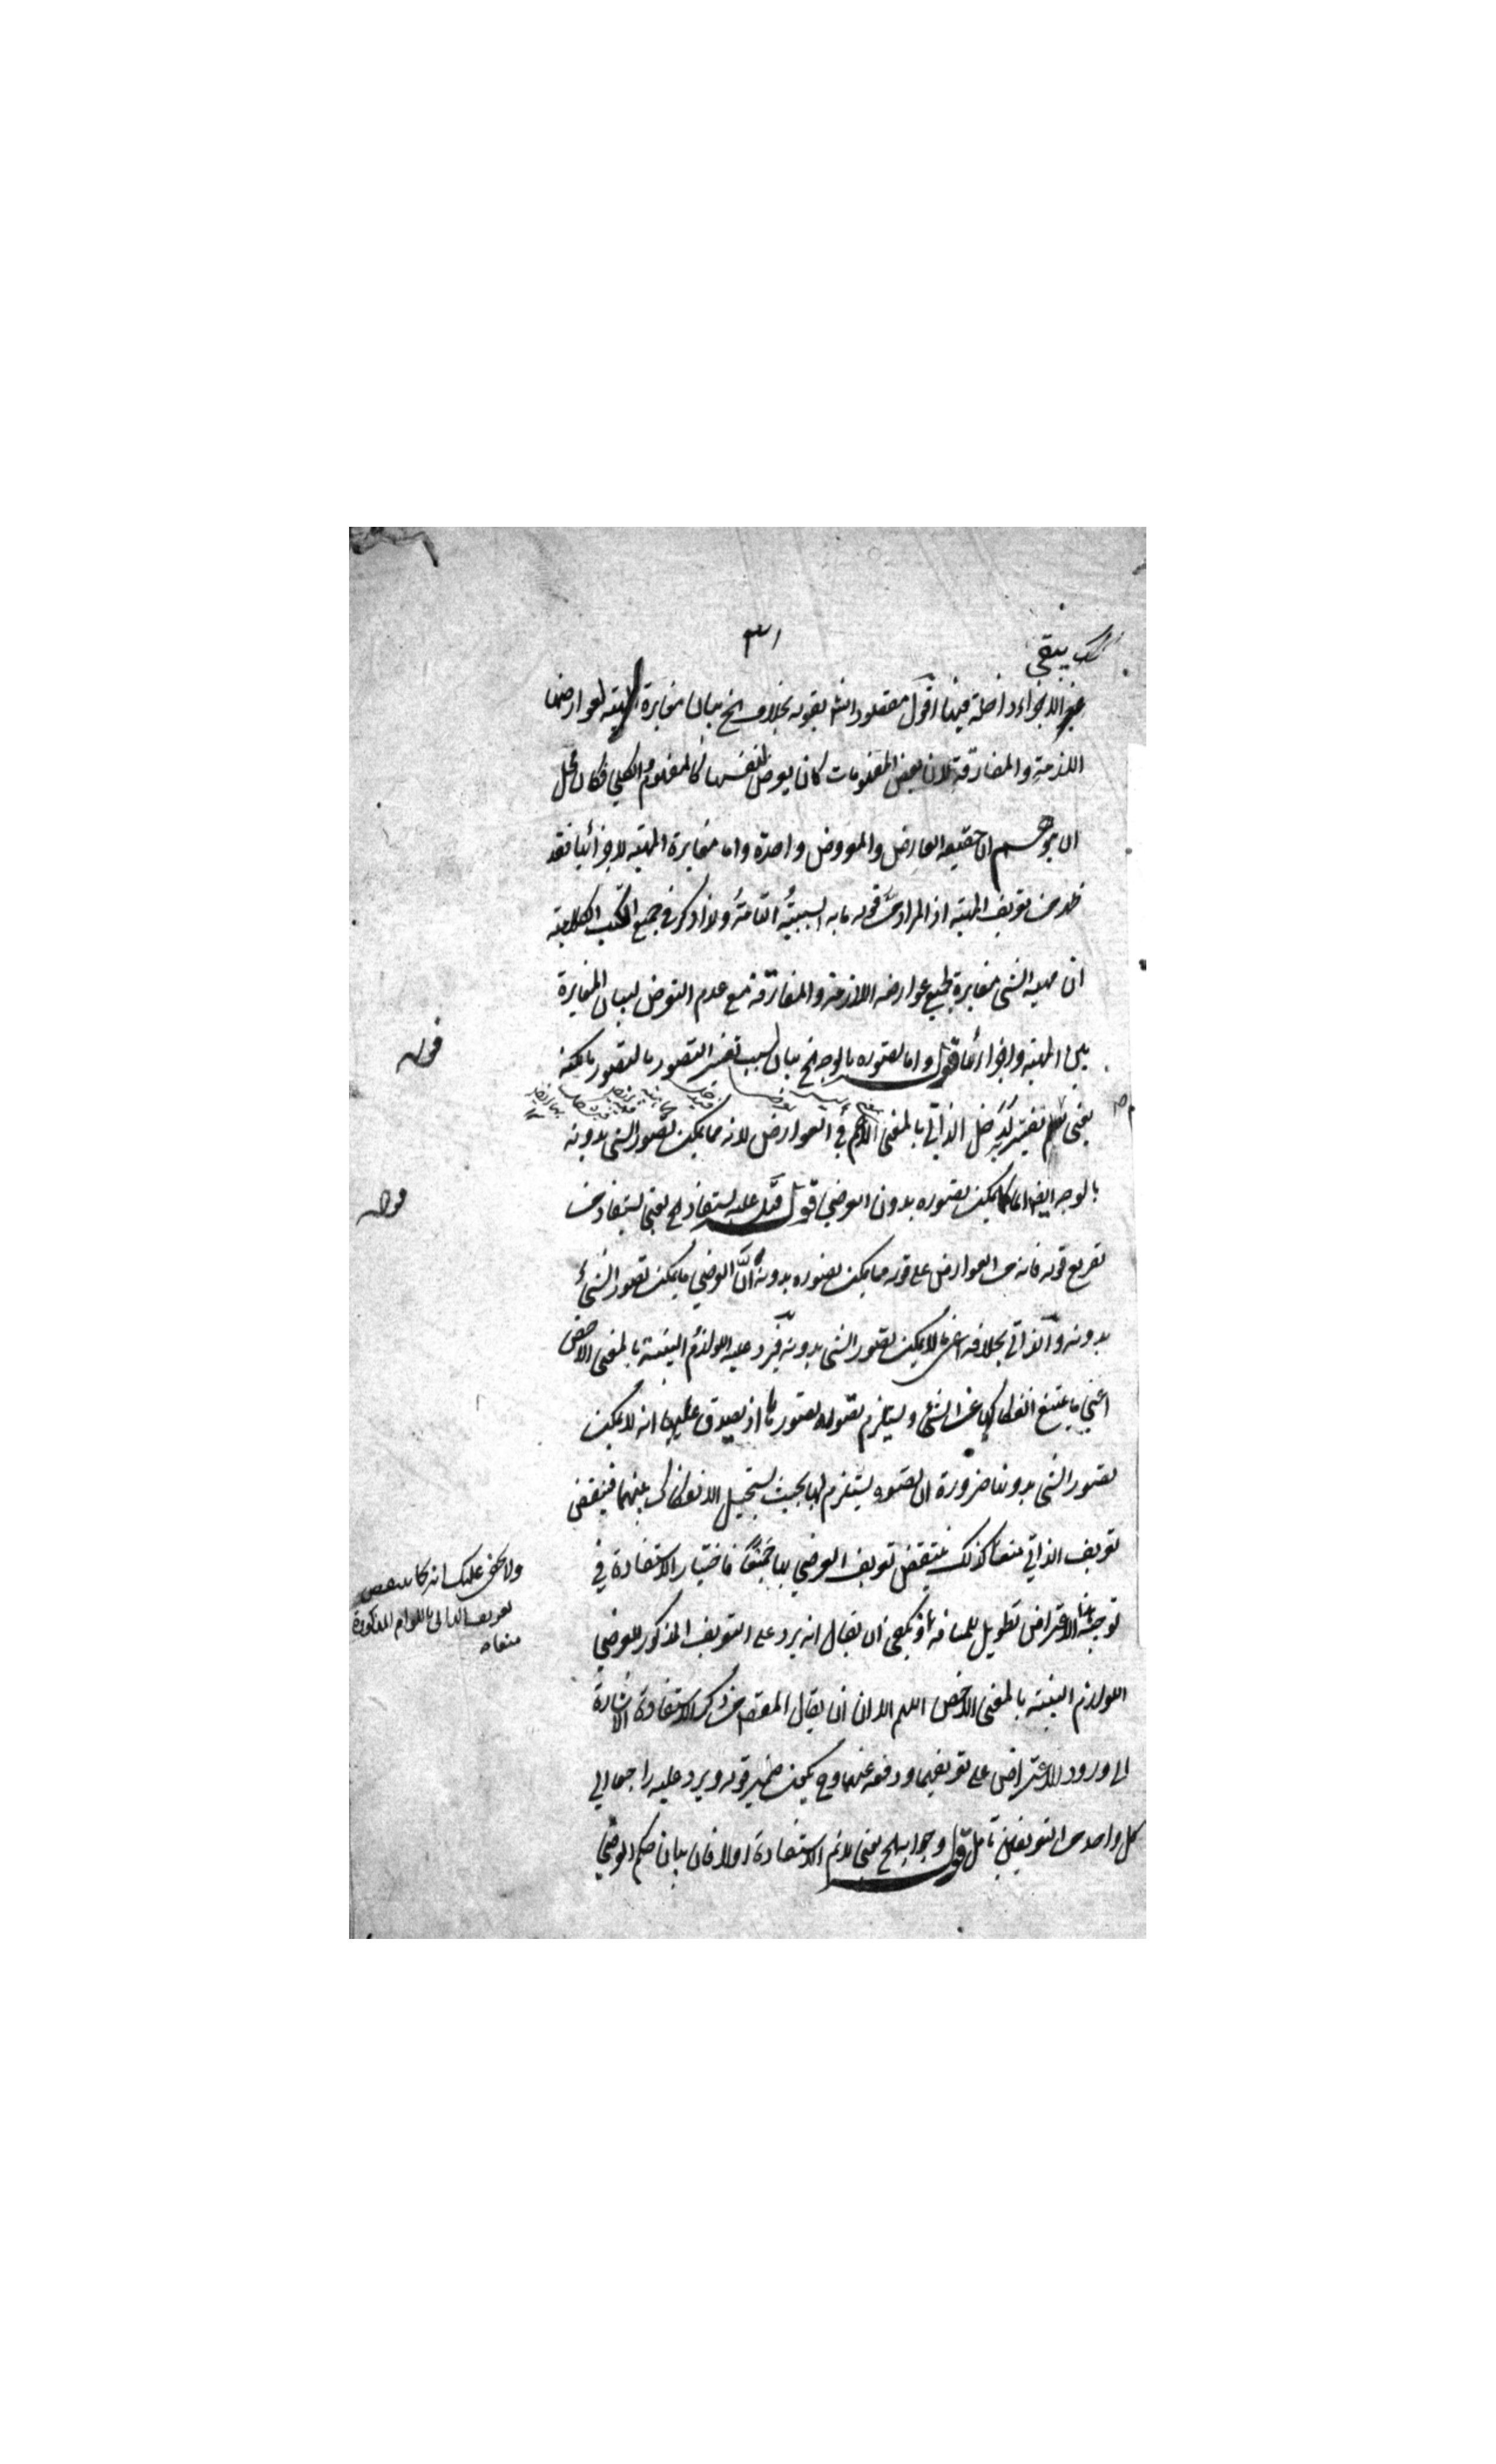 يبقى
٣١
الاجزاء داخلة فيها اقول مقصود الش بقوله بخلاف الخ بيان مغايرة المهية لعوارضها
اللازمة والمفارقة لان بعض المفهومات كان يعرض لنفسها كالمفهوم والكلي فكان محل
ان يتوهم ان حقيقة العارض والمعروض واحدة واما مغايرة المهية لاجزائها فقد
من تعريف المهية اذ المراد من قوله ما به السببية التامة ولذا ذكر في جميع الكتب الكلامية
ان مهية الشئ مغايرة لجميع عوارضه اللازمة والمفارقة مع عدم التعرض لبيان المغايرة
بين المهية واجزائها قوله واما تصوره بالوجه الخ بيان لسبب تفسير التصور بالتصور بالكنه
قوله
يعني لو لم يفسر لدخل الذاتي بالمعنى الاعم في العوارض لانه مما يمكن تصور الشئ بدونه
بالوجه ايضا كما يمكن تصوره بدون العرضي قوله قيل عليه يستفاد الخ يعني يستفاد من
قوله
تفريع قوله فانه من العوارض على قوله مما يمكن تصوره بدونه ان العرضي ما يمكن تصور الشئ
بدونه والذاتي بخلافه اعني ما لا يمكن تصور الشئ بدونه فيرد عليه اللوازم البينة بالمعنى الاخص
اعني ما يمتنع انفكاكها عن الشئ ويستلزم تصوره تصورها اذ يصدق عليها انه لا يمكن
تصور الشئ بدونها ضرورة ان تصوره يستلزم لها بحيث يستحيل الانفكاك بينهما فينتقض
تعريف الذاتي منعا كذلك ينتقض تعريف العرضي بها جمعا فاختيار الاستفادة في
ولا يخفى عليك انه كما ينتقض
تعريف الذاتي باللوازم المذكورة
منعا
توجيه الاعتراض تطويل للمسافة اذ يكفي ان يقال انه يرد على التعريف المذكور للعرضي
اللوازم البينة بالمعنى الاخص اللهم الا ان يقال المقصود من ذكر الاستفادة الاشارة
الى ورود الاعتراض على تعريفيهما ودفعه عنهما وح يكون ضمير قوله ويرد عليه راجعا الى
كل واحد من التعريفين تأمل قوله وجوابه الخ يعني لانم الاستفادة اولا فان بيان حكم العرضي